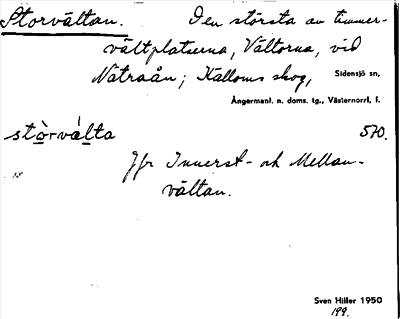 Storvältan. Den största av timmer-
vältplatserna, Vältorna, vid
Nätraån; Källoms skog, Sidensjö sn,
Ångermanl. n. doms. tg., Västernorrl. l.
stòrválta 570.
Jfr Innerst- och Mellan-
vältan.
Sven Hiller 1950
199.